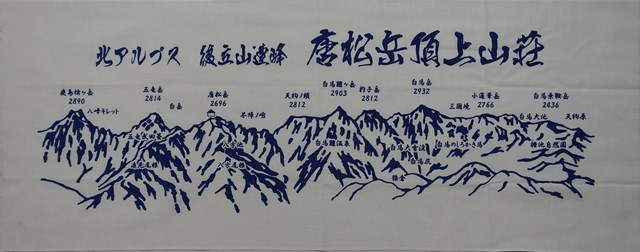 北アルプス 後立山連峰 唐松岳頂上山荘
鹿島槍ヶ岳
2890
八峰キレット
五竜岳
2814
白岳
唐松岳
2696
不帰ノ嶮
天狗ノ頭
2812
白馬鑓ヶ岳
2903
杓子岳
2812
白馬岳
2932
三国境
小蓮華岳
2766
白馬乗鞍岳
2436
白馬大池
天狗原
五竜山荘
遠見尾根
八方池
八方尾根
白馬鑓温泉
白馬大雪渓
白馬尻
白馬のしろかき馬
栂池自然園